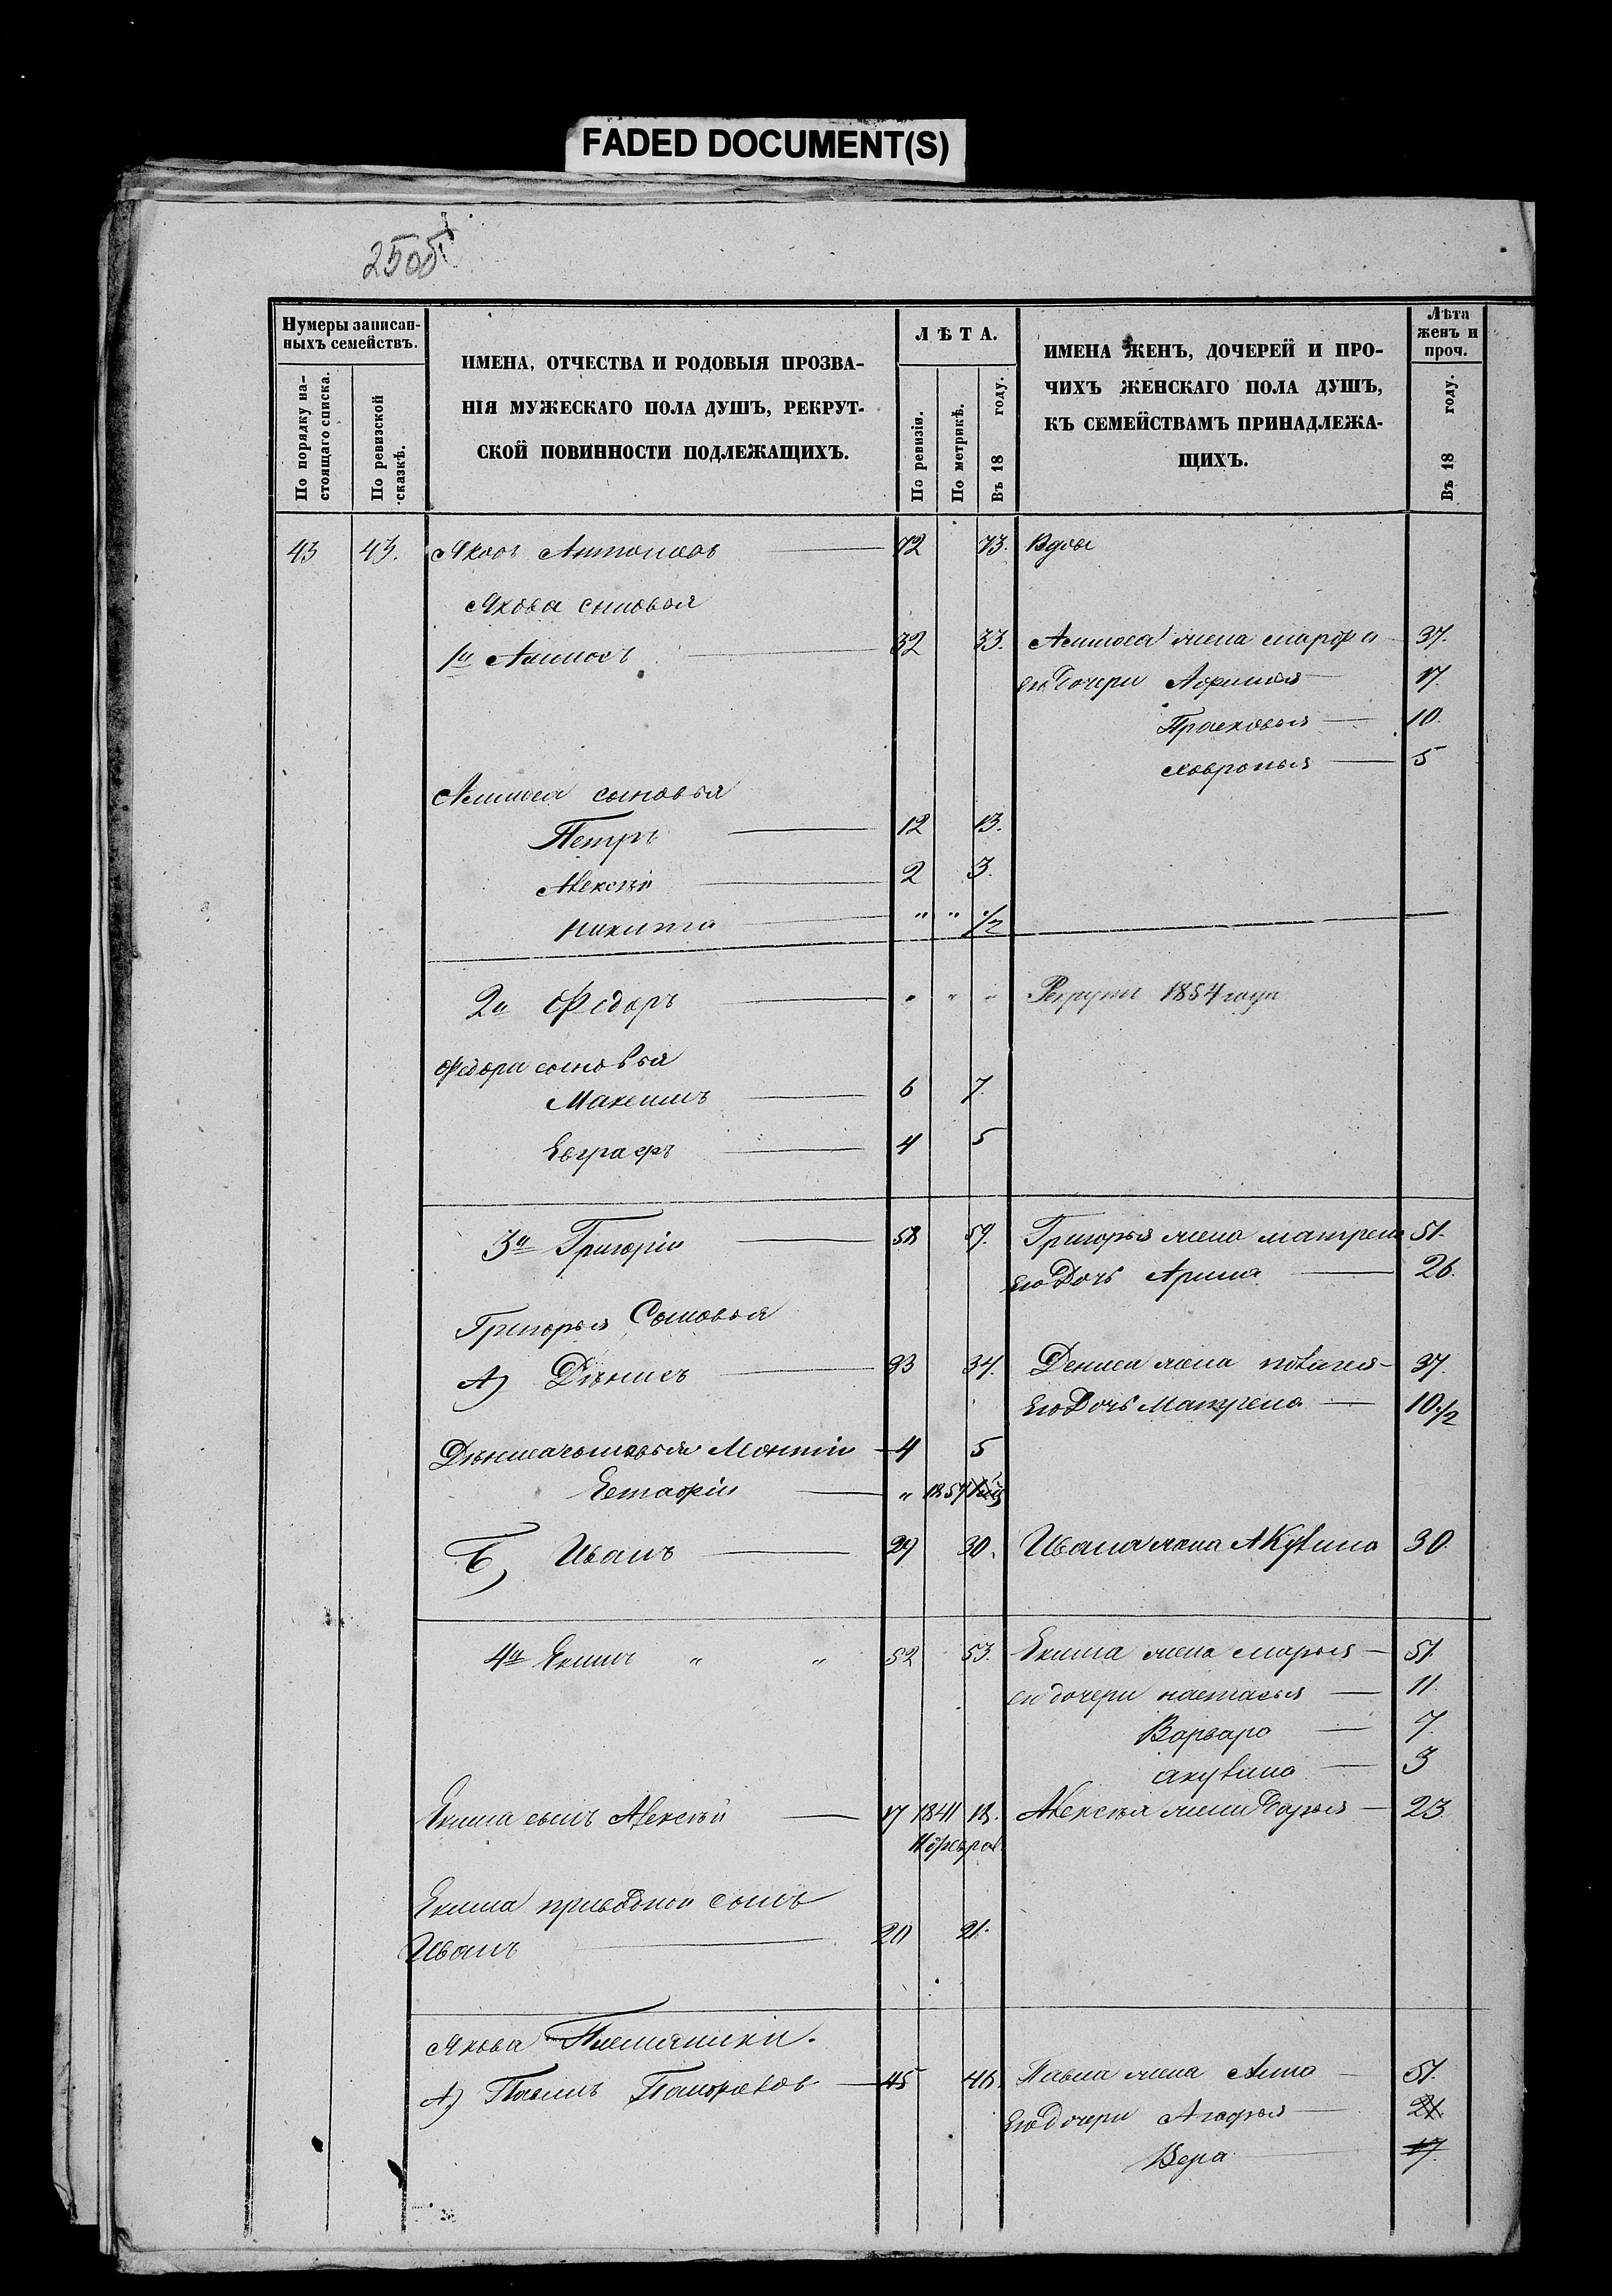 FADED DOCUMENT(S)
250б
Нумеры записан-
ныхъ семействъ.
По порядку на-
стоящаго списка.
По ревизской
сказкѣ.
ИМЕНА, ОТЧЕСТВА И РОДОВЫЯ ПРОЗВА-
НІЯ МУЖЕСКАГО ПОЛА ДУШЪ, РЕКРУТ-
СКОЙ ПОВИННОСТИ ПОДЛЕЖАЩИХЪ.
ЛѢТА.
По ревизіи.
По метрикѣ.
Въ 18 году.
ИМЕНА ЖЕНЪ, ДОЧЕРЕЙ И ПРО-
ЧИХЪ ЖЕНСКАГО ПОЛА ДУШЪ,
КЪ СЕМЕЙСТВАМЪ ПРИНАДЛЕЖА-
ЩИХЪ.
Лѣта
женъ и
проч.
Въ 18 году.
43 43. Яковъ Антоновъ 72 73. Вдовъ
Якова сыновья
1й 32 33. жена Марфа 37.
его Дочери Афимья 17.
Прасковья 10.
Ховронья 5
сыновья
Петръ 12 13.
Алексѣй 2 3.
Никита " " 1/2
2й Федоръ " " " Рекрутъ 1854 года
Федора сыновья
Максимъ 6 7.
Евграфъ 4 5
3й Григорій 58 59. Григорья жена матрена 51.
его Дочь Арина 26.
Григорья Сыновья
А) Дѣнисъ 33 34. Дениса жена пелагея 37.
Его Дочь Матрена 10 1/2
Дѣниса сыновья 4 5
Естафій " 1857
Б) Иванъ 29 30. Ивана жена Акулина 30.
4й Екимъ " " 52 53. Екима жена марья 51.
его дочери настасья 11.
Варвара 7.
акулина 3
Екима сынъ Алексѣй 17 1841 18. Алексѣя жена Дарья 23.
11 феврал
Екима приводной сынъ
Иванъ 20 21.
Якова Племянники.
А) Павелъ 45 46. Павла жена Анна 51.
Его дочери Агафья 21.
Вера 17.